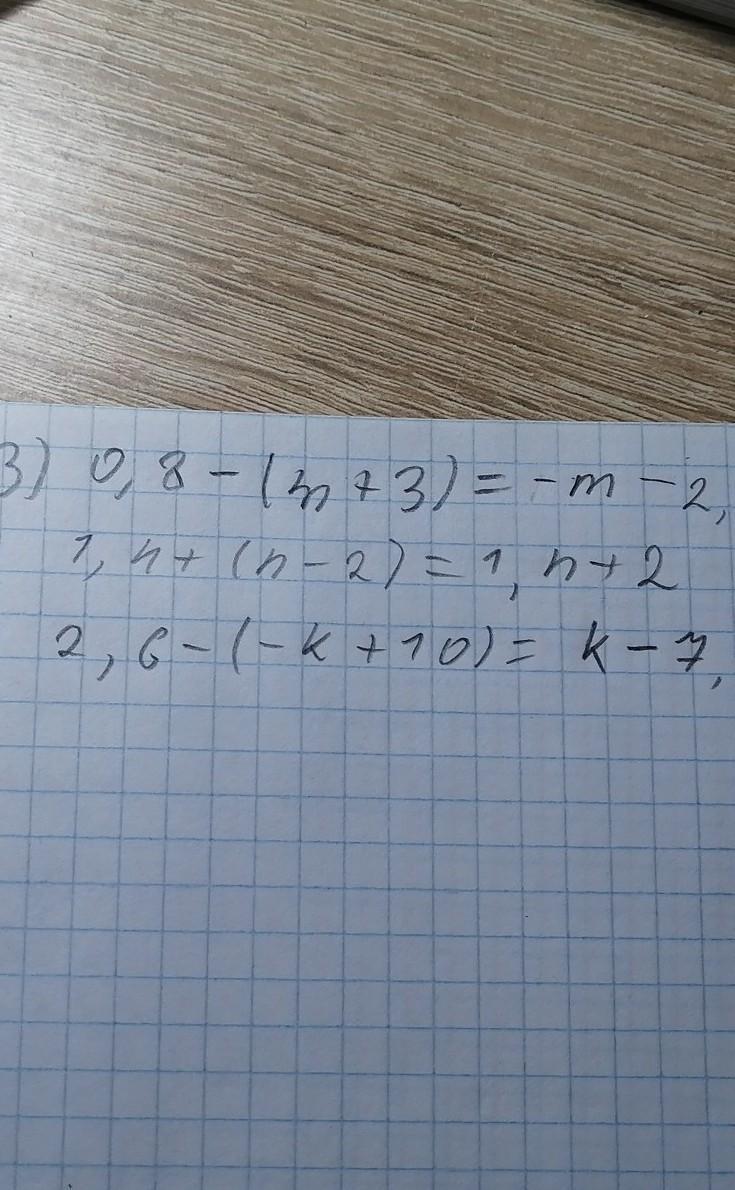 3) 0,8-(m+3)=-m-2,
1,n+(n-2)=1,n+2
2,6-(-k+10)= k-7,